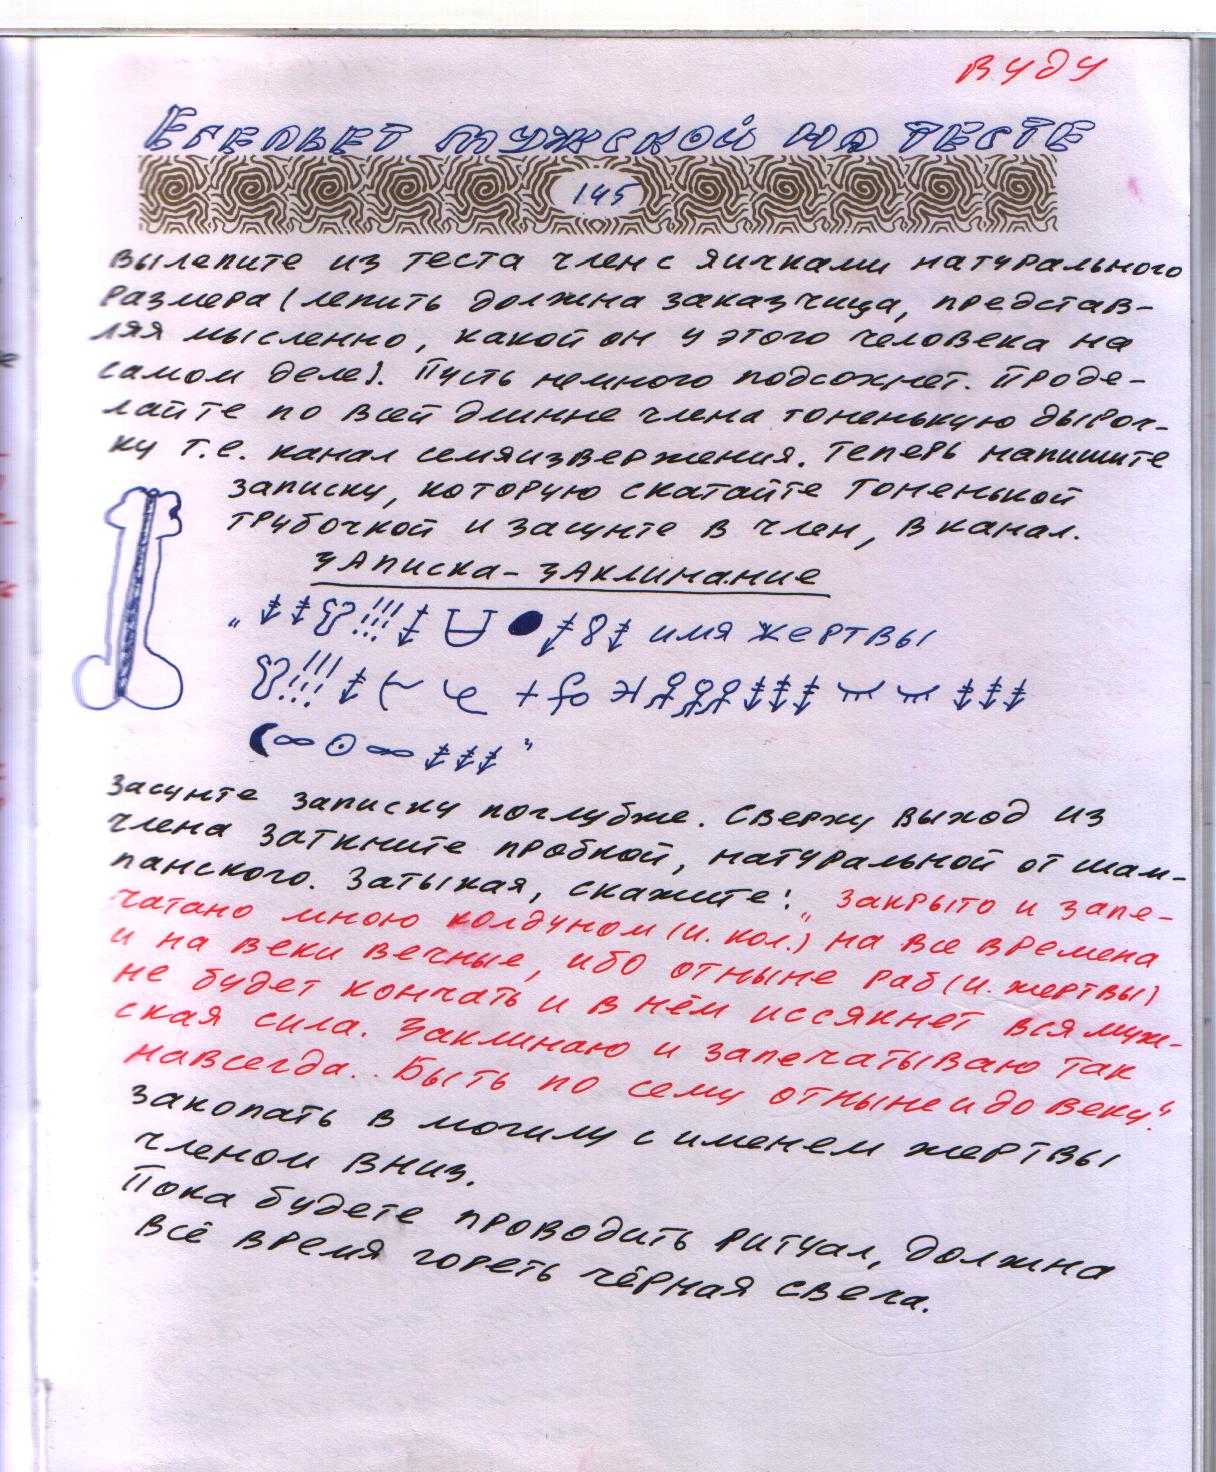 ВУДУ
ЕГЕПЬЕТ МУЖСКОЙ НА ТЕСТЕ
145
Вылепите из теста член с яичками натурального
размера (лепить должна заказчица, представ-
ляя мысленно, какой он у этого человека на
самом деле). Пусть немного подсохнет. Проде-
лайте по всей длинне члена тоненькую дыроч-
ку т.е. канал семяизвержения. Теперь напишите
записку, которую скатайте тоненькой
трубочкой и засуньте в член, в канал.
Записка-заклинание
имя жертвы
Засуньте записку поглубже. Сверху выход из
члена заткните пробкой, натуральной от шам-
панского. Затыкая, скажите: „Закрыто и запе-
чатано мною колдуном (и. кол.) на все времена
и на веки вечные, ибо отныне раб (и. жертвы)
не будет кончать и в нём иссякнет вся муж-
ская сила. Заклинаю и запечатываю так
навсегда.. Быть по сему отныне и до веку."
Закопать в могилу с именем жертвы
членом вниз.
Пока будете проводить ритуал, должна
всё время гореть чёрная свеча.